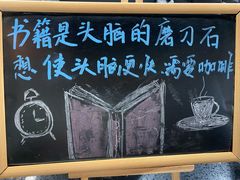 书籍是头脑的磨刀石
想使头脑更快需要咖啡